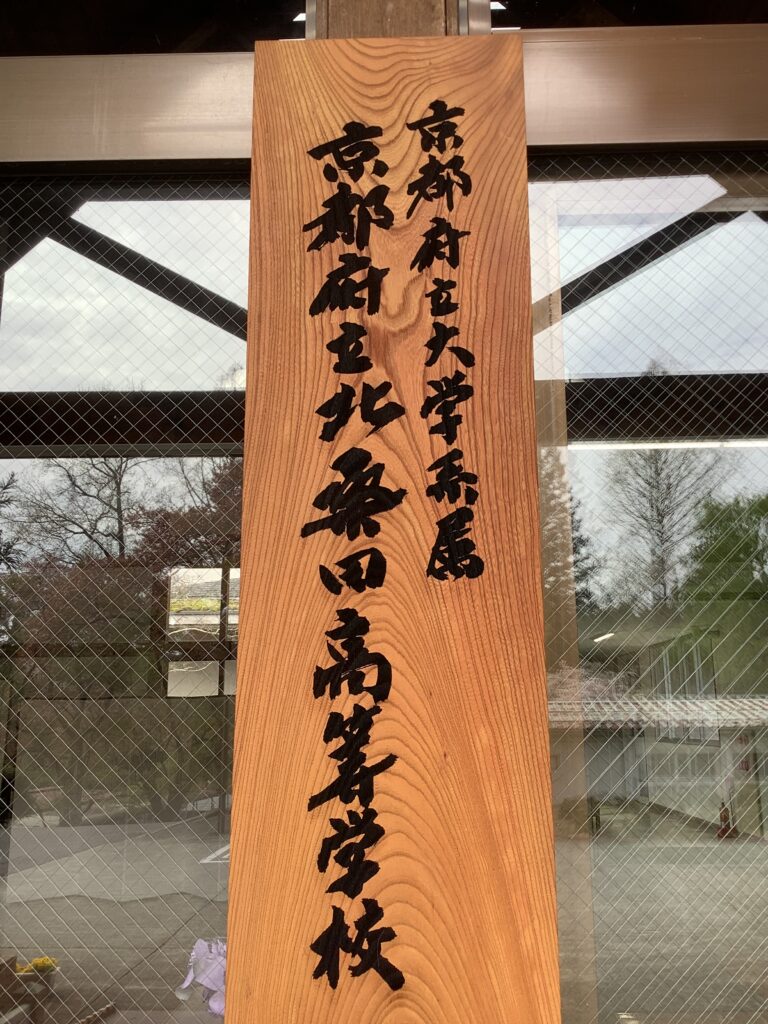 京都府立大学系属
京都府立北桑田高等学校